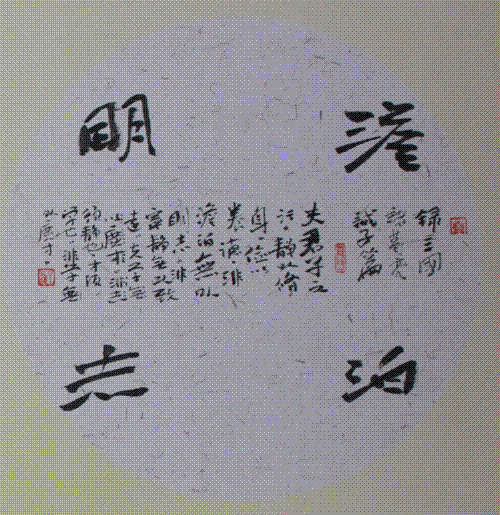 澹泊
明志
錄三國
諸葛亮
誡子篇
夫君子之
行靜以修
身儉以
養德非
澹泊無以
明志非
寧靜無以致
遠夫
須靜也才須
學也非學無
以廣才